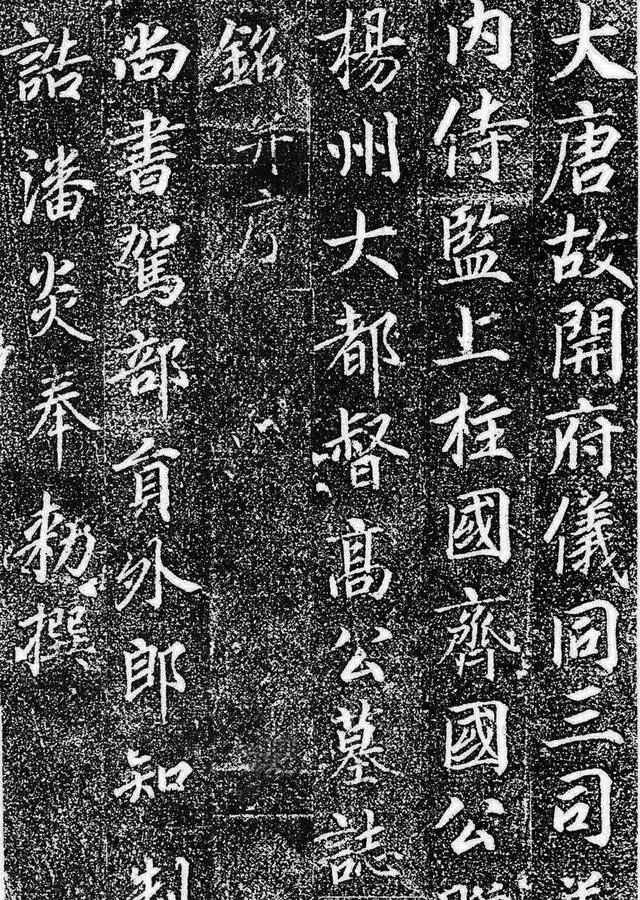 大唐故開府儀同三司
内侍監上柱國齊國公
楊州大都督髙公墓誌
銘并序
尚書駕部貟外郎知制
誥潘炎奉勑撰